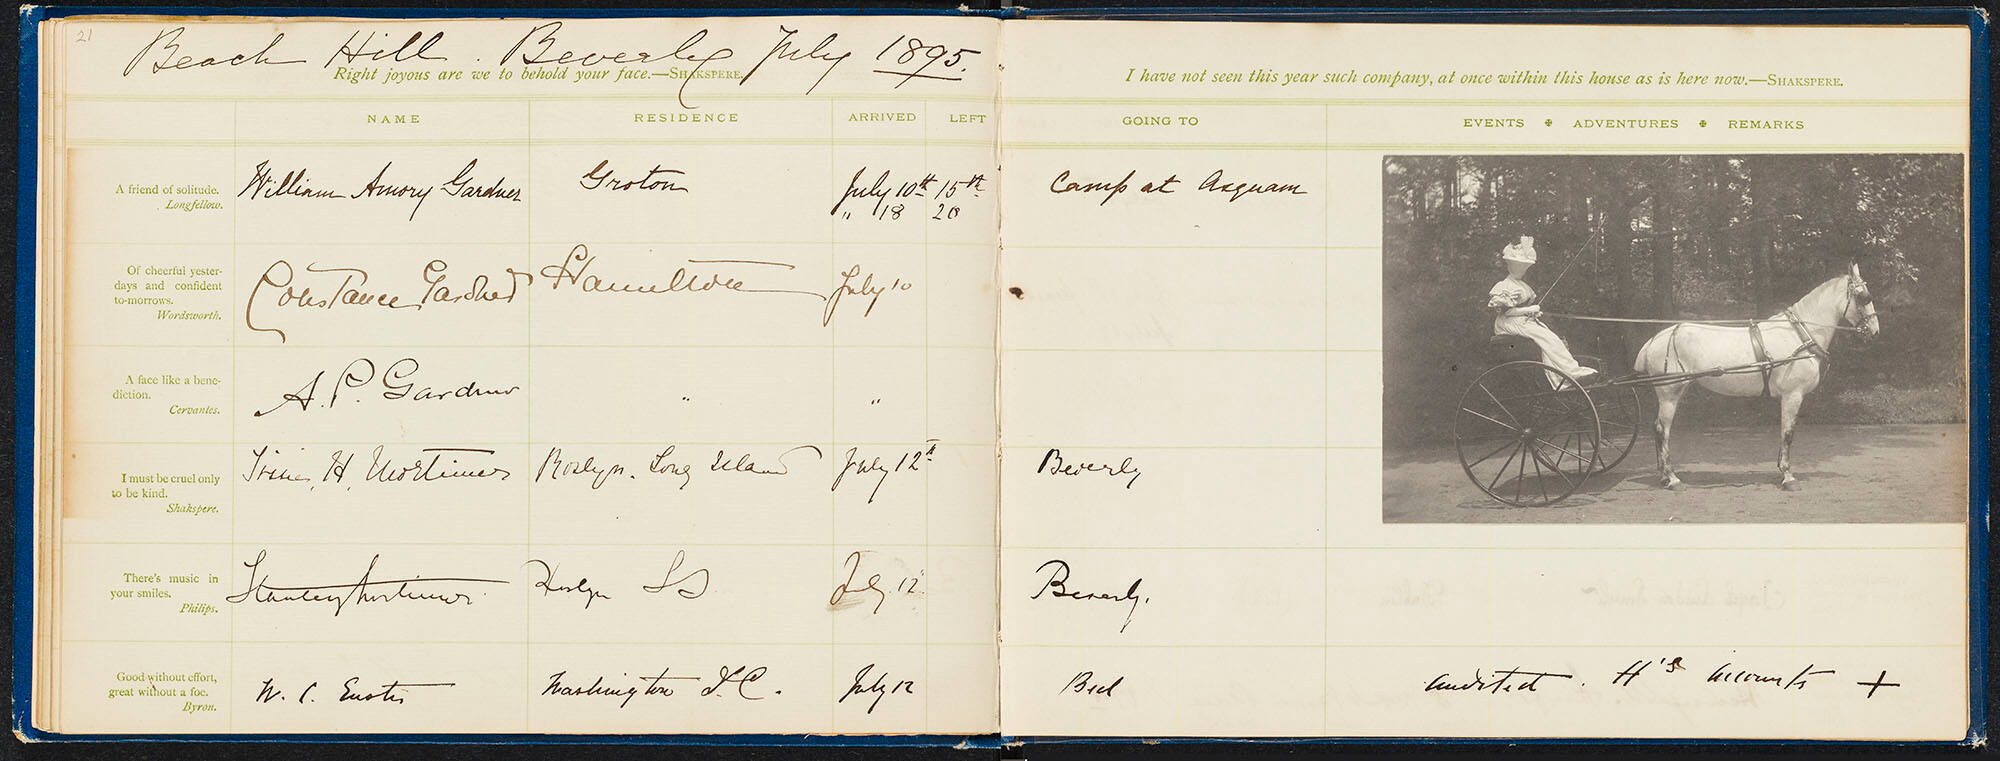 21
Beach Hill. Beverly July 1895.
Right joyous are we to behold your face.—SHAKSPERE.
I have not seen this year such company, at once within this house as is here now.—SHAKSPERE.
NAME RESIDENCE ARRIVED LEFT GOING TO EVENTS ✠ ADVENTURES ✠ REMARKS
A friend of solitude.
Longfellow.
William Amory Gardner Groton July 10th 15th Camp at Asquam
" 18 20
Of cheerful yester-
days and confident
to-morrows.
Wordsworth.
Constance Gardner Hamilton July 10
A face like a bene-
diction.
Cervantes.
A. P. Gardner " "
I must be cruel only
to be kind.
Shakspere.
H. Mortimer Roslyn. Long Island July 12th Beverly
There's music in
your smiles.
Philips.
Stanley Mortimer July 12 Beverly.
Good without effort,
great without a foe.
Byron.
W. C. Eustis Washington D.C. July 12 Bed audited. H's accounts +